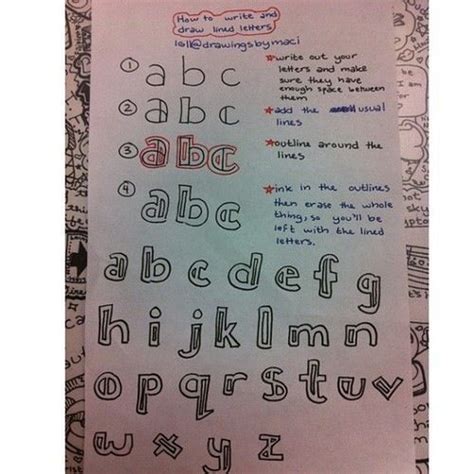 How to write and
draw lined letters
① a b c
★write out your
letters and make
sure they have
enough space between
them
② a b c
★add the usual
lines
③ a b c
★outline around the
lines
④ a b c
★ink in the outlines
then erase the whole
thing, so you'll be
left with the lined
letters.
a b c d e f g
h i j k l m n
o p q r s t u v
w x y z